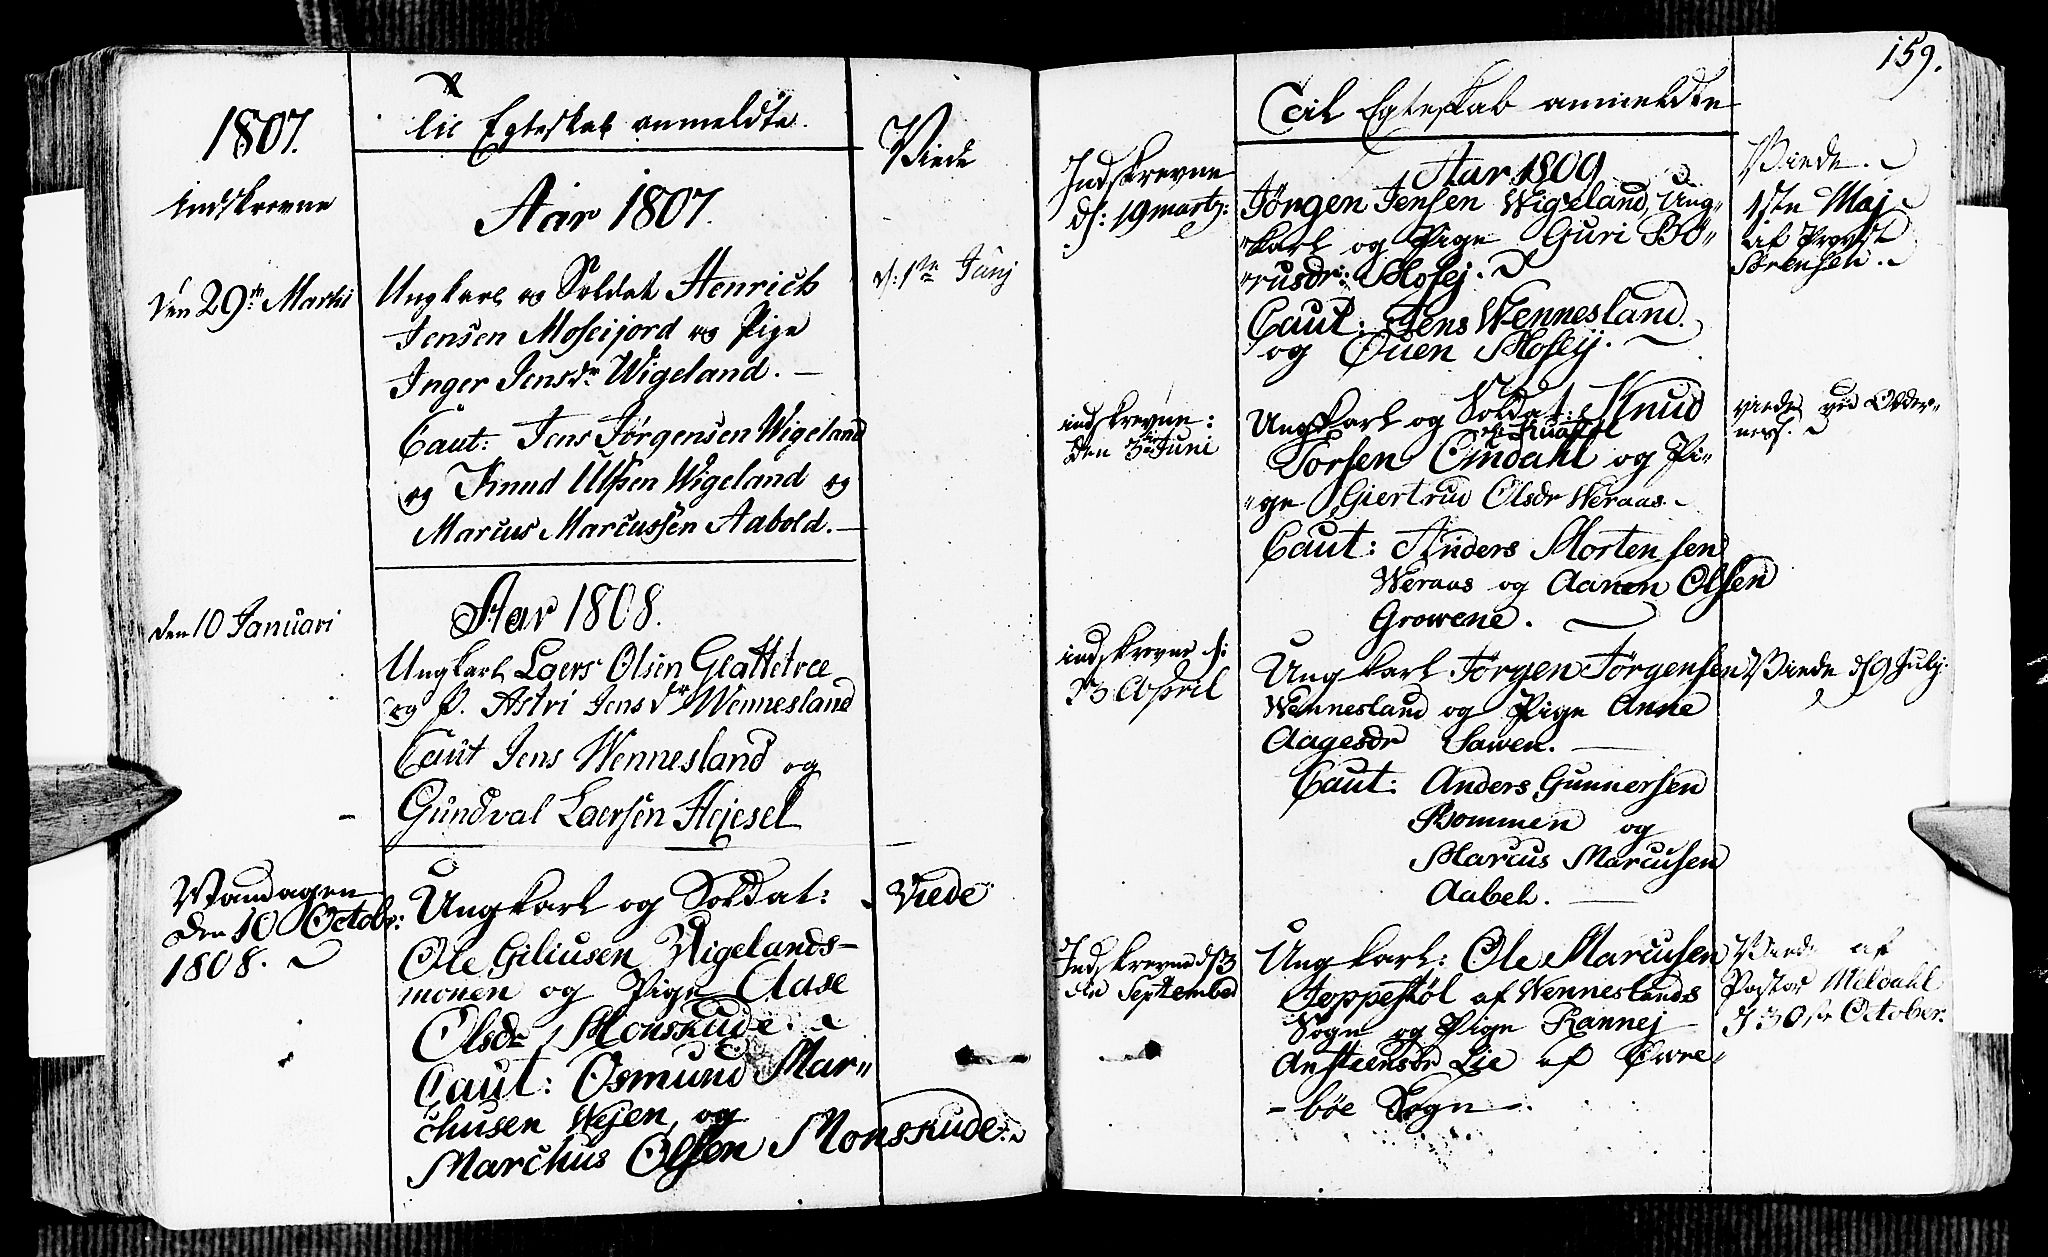 1807.
Indskrevne
Til Egteskab anmeldte.
Viede
Aar 1807.
den 29de Martii
Ungkarl og Soldat Henrich
Jensen Moseijord og Pige
Inger Jensdr Wigeland. —
Caut: Jens Jørgensen Wigeland
og Knud Ulfsen Wigeland og
Marcus Marcussen Aabold. —
d. 1te Junj
Aar 1808.
den 10 Januari
Ungkarl Laers Olsen Glattetræ
og P. Astri Jensdr Wennesland
Caut Jens Wennesland og
Gundval Laersen Hejesel
Mandagen
den 10 Octobr:
1808.
Ungkarl og Soldat:
Ole Giliusen Vigelands-
monen og Pige Aase
Olsdr Monskude.
Caut: Osmund Mar-
chusen Wejen og
Marchus Olssen Monskude.
Viede
159.
Til Egteskab anmeldte
Indskrevne
d: 19 martz:
Aar 1809
Jørgen Jensen Wigeland, Ung-
karl og Pige Guri Bo-
rusdr: Mosej.
Caut: Jens Wennesland.
og Ouen Mosejj.
Viede.
1ste Maj
af Provst
Sørensen.
indskrevne:
den 3die Juni
Ungkarl og Soldat: Knud
Torsen Eindahl og Pi-
ge Giertrud Olsdr Weraas.
Caut: Anders Mortensen
Weraas og Aanen Olsen
Growene.
viede ved Odder-
ness.
indskrevne d:
23 April
Ungkarl Jørgen Jørgensen
Wennesland og Pige Anne
Aagesdr Sawen.
Caut: Anders Gunnersen
Bommen og
Marcus Marcusen
Aabel.
Viede d 9 July.
Indskrevne d 3
den September
Ungkarl: Ole Marcusen
Toppestøl af Wenneslands
Sogn og Pige Rannej
Ansteensdr Lie af Ewre-
- bøe Sogn.
Viede af
Pastor Mildahl
d 30te October.